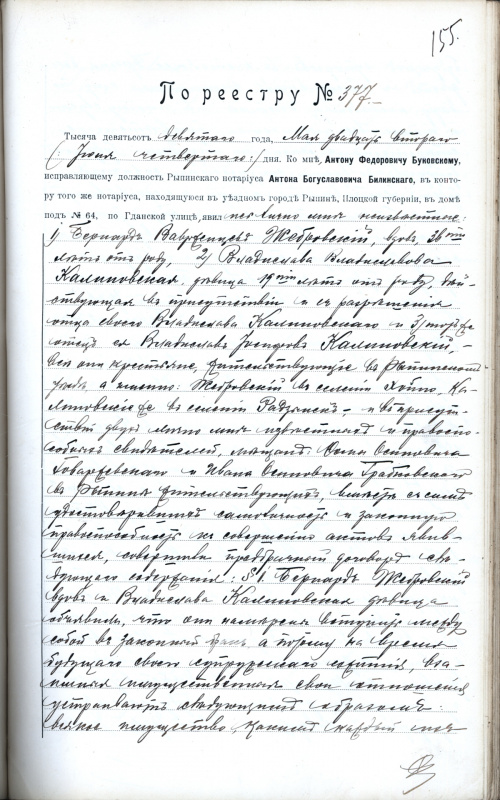 155.
По реестру № 377.
Тысяча девятьсотъ девятаго года, Мая двадцать второго
(Iюня четвертаго) дня. Ко мнѣ, Антону Федоровичу Буковскому,
исправляющему должность Рыпинскаго нотаріуса Антона Богуславовича Билинскаго, въ контору
того же нотаріуса, находящуюся въ уѣздномъ городѣ Рыпинѣ, Плоцкой губерніи, въ домѣ
подъ № 64, по Гданской улицѣ, явил лично мнѣ неизвѣстные:
1) Бернардъ Вавженцевъ Жебровскій, вдовъ, 36
лѣтъ отъ роду, 2) Владислава Владиславова
Калиновская, дѣвица 19 лѣтъ отъ роду, дѣй-
ствующая въ присутствіи и съ разрѣшенія
отца своего Владислава Калиновскаго и 3) тотъ же
отецъ ея Владиславъ Калиновскій, -
всѣ они крестьяне, жительствующіе въ Рыпинскомъ
уѣздѣ, а именно: Жебровскій въ селеніи Ка-
линовскіе же въ селеніи - и въ присут-
ствіи двухъ лично мнѣ извѣстныхъ и правоспо-
собныхъ свидѣтелей, мѣщанъ: Осиповича
и Ивана Осиповича Грабковскаго
въ Рыпинѣ жительствующихъ,
удостовѣрившихъ самоличность и законную
правоспособность къ совершенію актовъ явив-
шихся, совершили предбрачный договоръ слѣ-
дующаго содержанія: § 1. Бернардъ Жебровскій
вдовъ и Владислава Калиновская дѣвица
объявили, что они намѣрены вступить между
собой въ законный бракъ а потому на время
будущаго своего супружескаго сожитія, вза-
имныя имущественныя свои отношенія
устраиваютъ слѣдующимъ образомъ:
всякое имущество, каждый изъ